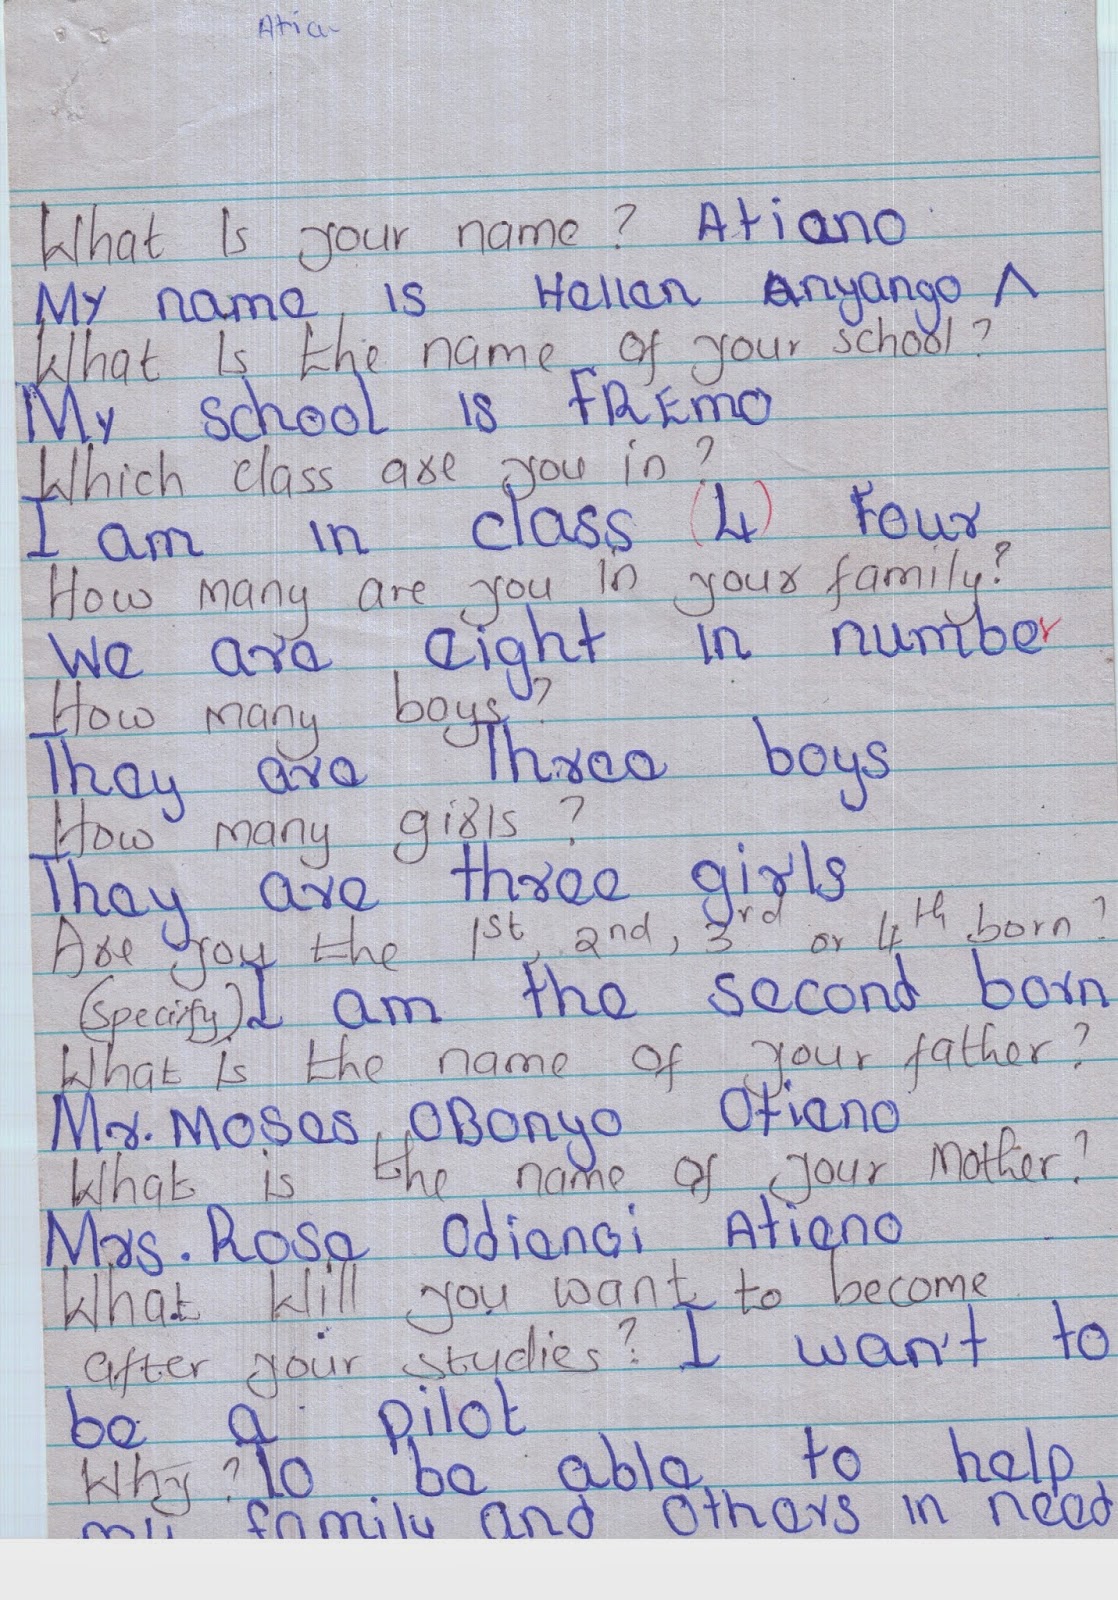 Atia
What Is your name? Atiano
My name is Hellen Anyango ^
What Is the name of your school?
My school is FREMO
Which class are you in?
I am in class (4) Four
How many are you in your family?
We are eight in number
How many boys?
They are Three boys
How many girls?
They are three girls
Are you the 1st, 2nd, 3rd or 4th born?
(specify) I am the second born
What Is the name of your father?
Mr. Moses OBonyo Otieno
What is the name of your Mother?
Mrs. Rose Odiangi Atieno
What Will you want to become
after your studies? I wan't to
be a pilot
Why? To be able to help
my family and others in need